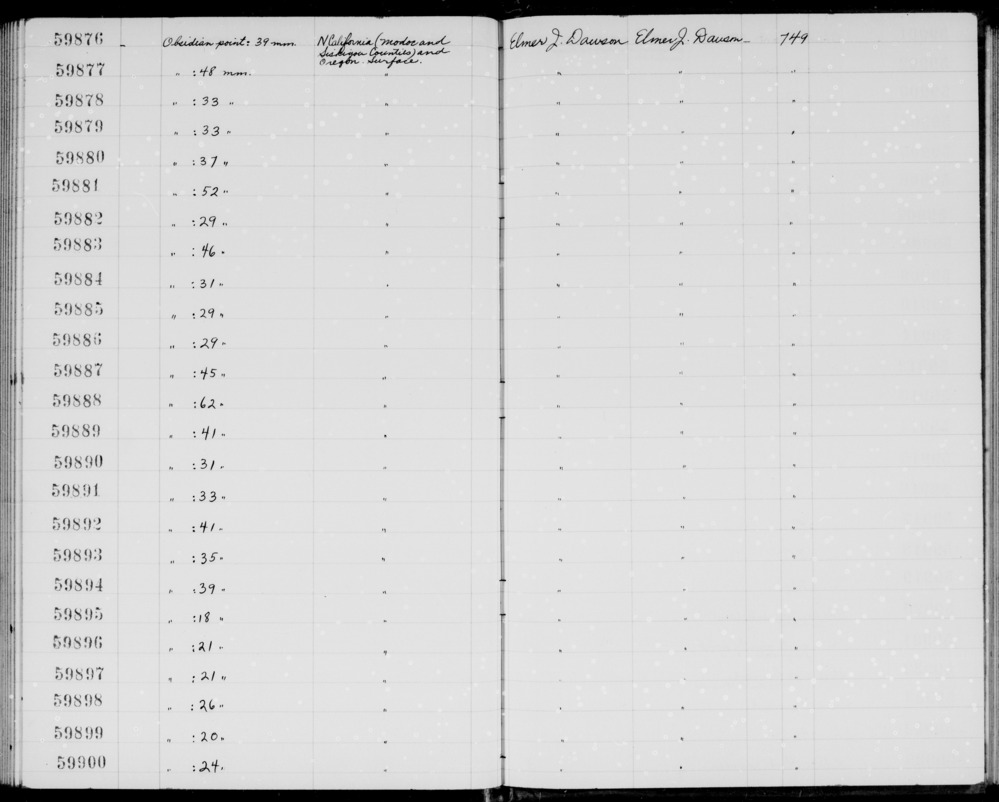 59876 Obsidian point: 39 mm. N California (Modoc and Siskiyou Counties) and Oregon. Surface. Elmer J. Dawson Elmer J. Dawson 749
59877 " : 48 mm. " " " "
59878 " : 33 " " " " "
59879 " : 33 " " " " "
59880 " : 37 " " " " "
59881 " : 52 " " " " "
59882 " : 29 " " " " "
59883 " : 46 " " " " "
59884 " : 31 " " " " "
59885 " : 29 " " " " "
59886 " : 29 " " " " "
59887 " : 45 " " " " "
59888 " : 62 " " " " "
59889 " : 41 " " " " "
59890 " : 31 " " " " "
59891 " : 33 " " " " "
59892 " : 41 " " " " "
59893 " : 35 " " " " "
59894 " : 39 " " " " "
59895 " : 18 " " " " "
59896 " : 21 " " " " "
59897 " : 21 " " " " "
59898 " : 26 " " " " "
59899 " : 20 " " " " "
59900 " : 24 " " " " "